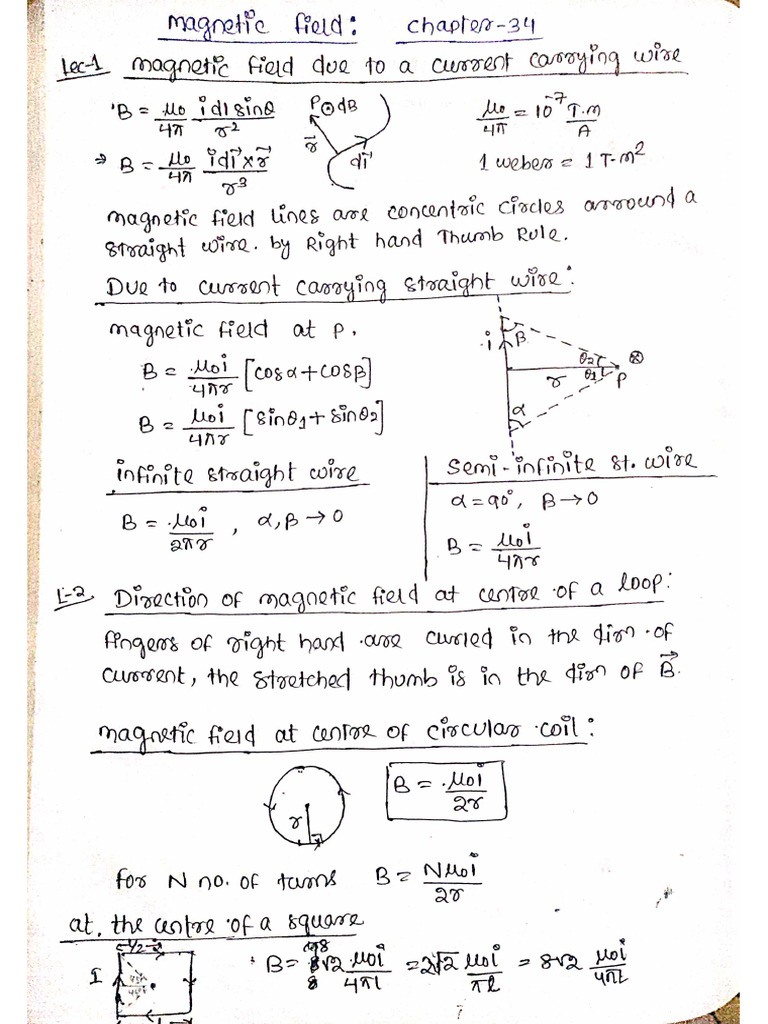 Magnetic Field: Chapter-34
Lec-1 Magnetic Field due to a current carrying wire
B = μ₀/4π idl sinθ/r²
P⊙dB
r⃗
dl⃗
μ₀/4π = 10⁻⁷ T.m/A
⇒ B = μ₀/4π idl⃗×r⃗/r³
1 weber = 1 T-m²
Magnetic field lines are concentric circles arround a
straight wire. by Right hand Thumb Rule.
Due to current carrying straight wire:
magnetic field at P.
B = μ₀i/4πr [cosα+cosβ]
B = μ₀i/4πr [sinθ₁+sinθ₂]
i β θ₂ ⊗
r θ₁ P
α
infinite straight wire
B = μ₀i/2πr , α,β→0
Semi-infinite st. wire
α=90°, β→0
B = μ₀i/4πr
L-2 Direction of magnetic field at centre of a loop:
fingers of right hand are curled in the dirn of
current, the stretched thumb is in the dirn of B⃗.
magnetic field at centre of circular coil:
r
B = μ₀i/2r
for N no. of turns B = Nμ₀i/2r
at the centre of a square
I
B = 8√2 μ₀i/4πl = 2√2 μ₀i/πl = 8√2 μ₀i/4πl